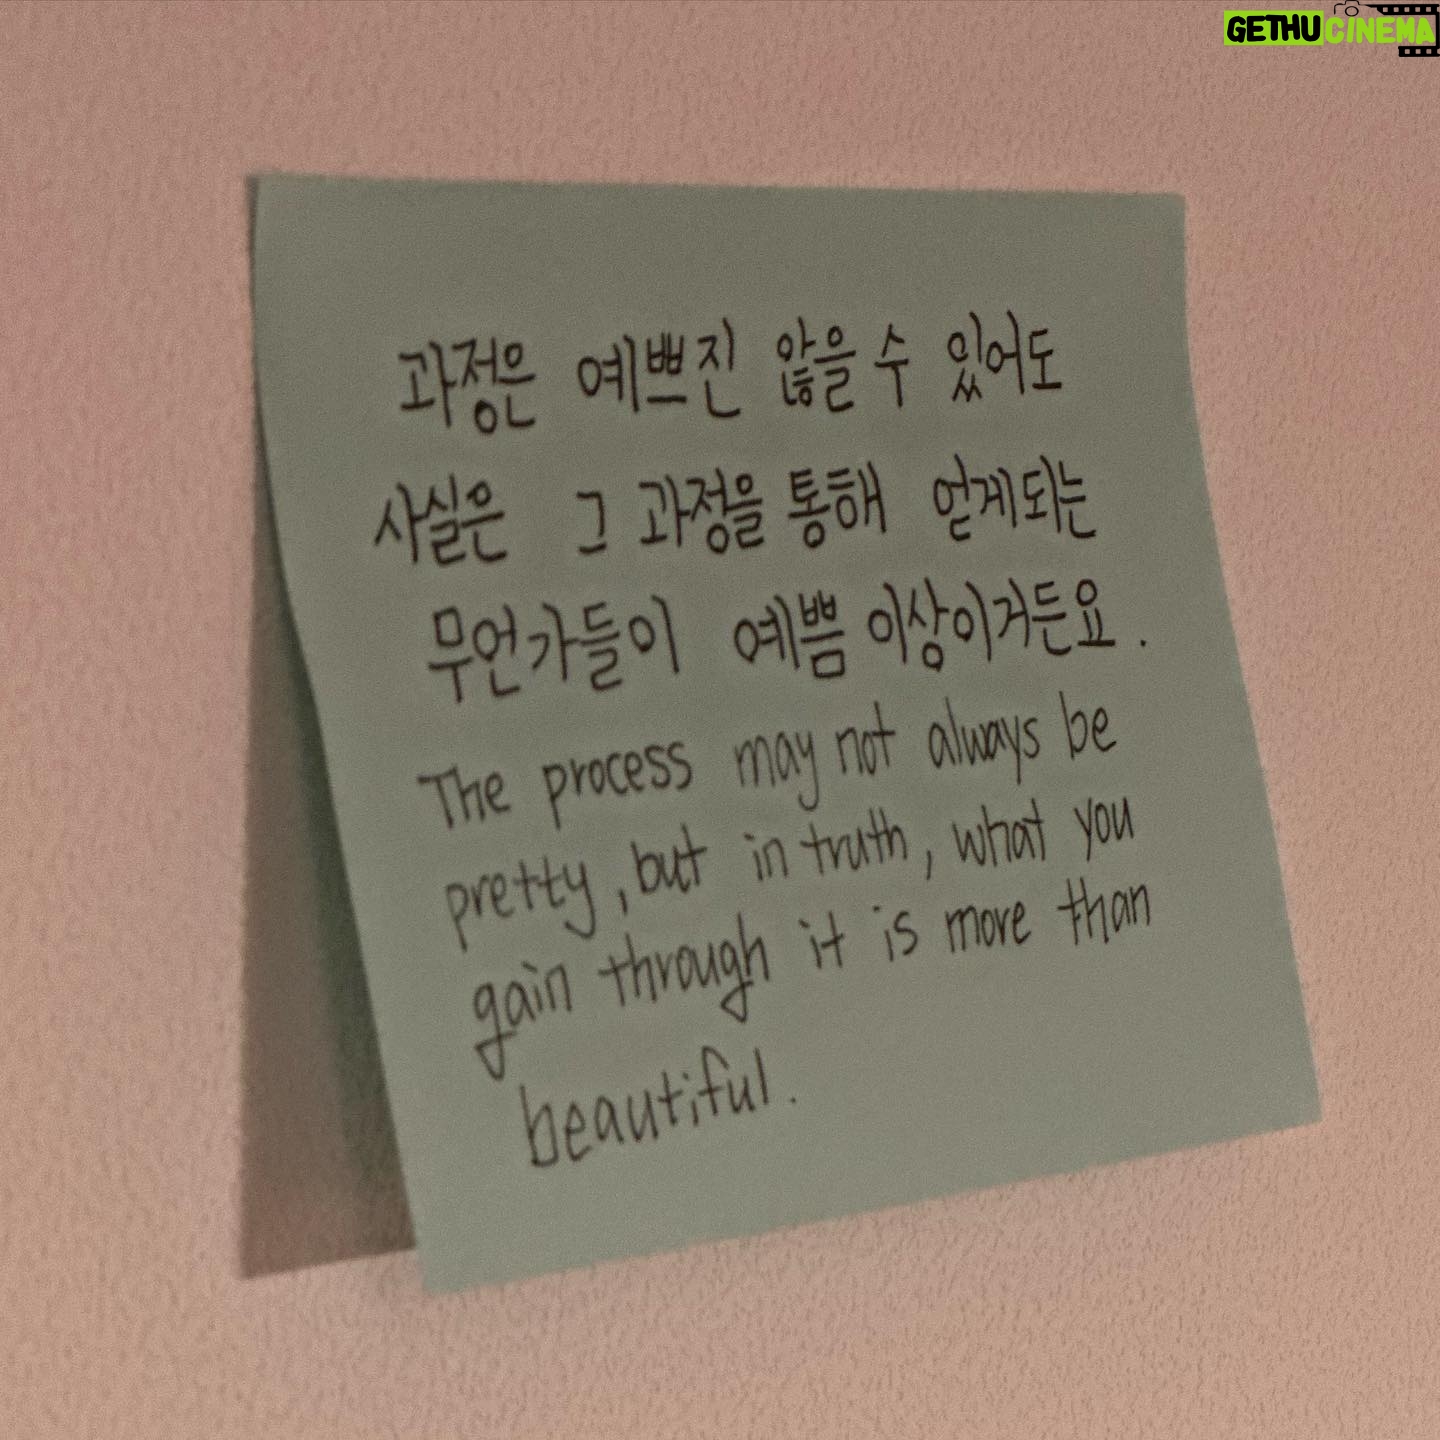 GETHU CINEMA
과정은 예쁘진 않을 수 있어도
사실은 그 과정을 통해 얻게되는
무언가들이 예쁨 이상이거든요.
The process may not always be
pretty, but in truth, what you
gain through it is more than
beautiful.